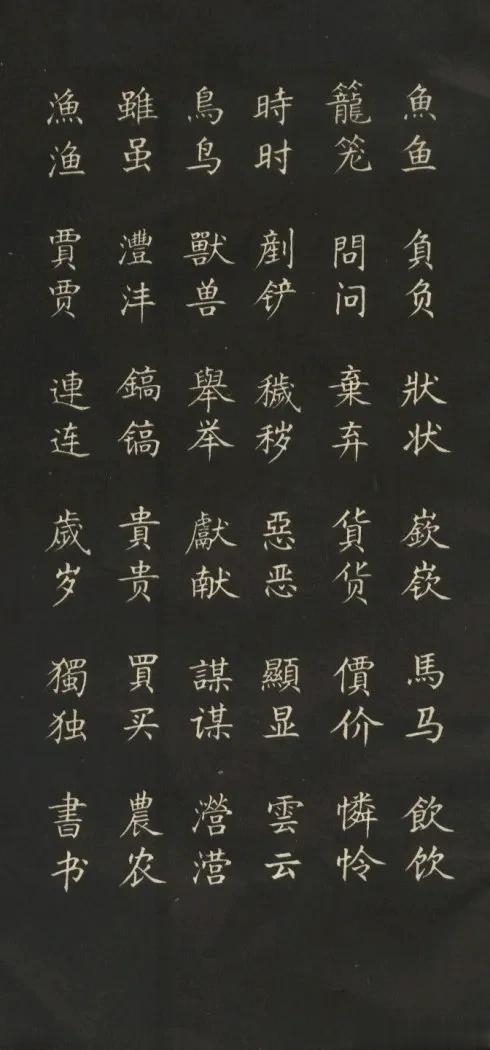 魚鱼 負负 狀状 嶔嵚 馬马 飲饮
籠笼 問问 棄弃 貨货 價价 憐怜
時时 剷铲 穢秽 惡恶 顯显 雲云
鳥鸟 獸兽 舉举 獻献 謀谋 瀯
雖虽 灃沣 鎬镐 貴贵 買买 農农
漁渔 賈贾 連连 歲岁 獨独 書书